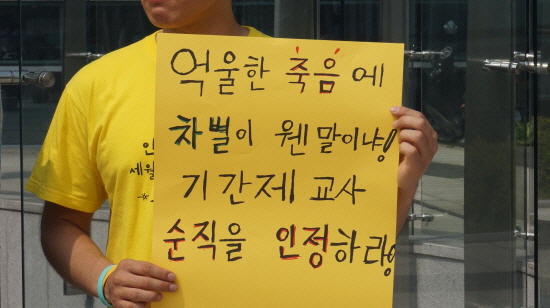 억울한 죽음에
차별이 웬말이냐!
기간제 교사
순직을 인정하라!
세월